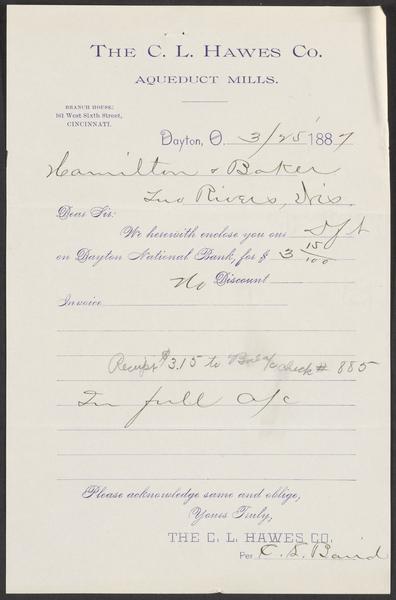 THE C. L. HAWES CO.
AQUEDUCT MILLS.
BRANCH HOUSE:
161 West Sixth Street,
CINCINNATI.
Dayton, O. 3/25 1887
Hamilton & Baker
Two Rivers, Wis.
Dear Sir:
We herewith enclose you our Dft
on Dayton National Bank, for $ 3 15/100
No Discount
Invoice
Receipt $3.15 to check # 885
In full a/c
Please acknowledge same and oblige,
Yours Truly,
THE C. L. HAWES CO.
Per C. E. Baird